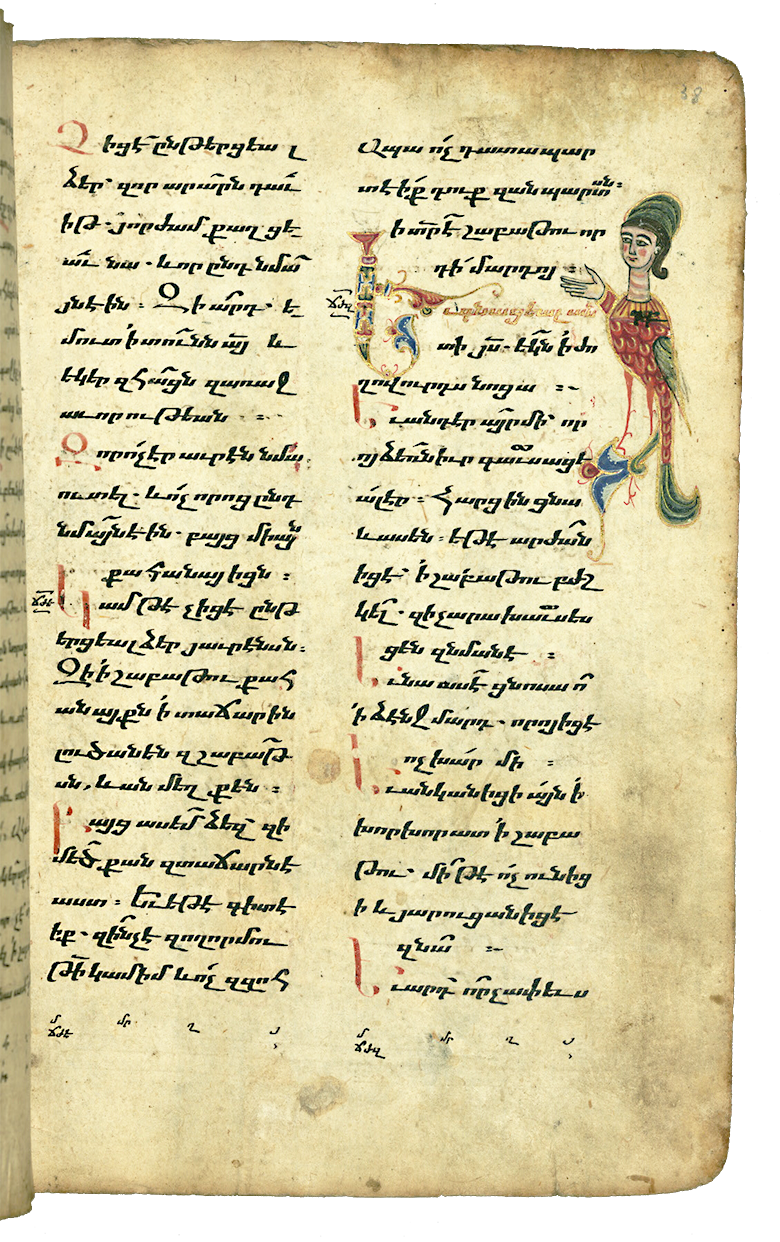 Չիցէ ընթերցեալ
ձեր. զոր արարն դաւ
իթ. յորժամ քաղցե
աւ նա. և որ ընդ նմա
յնէին։ Զի ա՞րդ. ե
մուտ ի տունն այ և
եկեր զհացն զառաջ
աւորութեան ։
Զոր ո՛չ էր աւրէն նմա
ուտել. և ո՛չ որոց ընդ
նմայն էին. բայց միայն
քահանայիցն ։
Կամ թէ չիցէ ընթ
երցեալ ձեր յաւրէնսն։
Զի ի շաբաթու քահ
անայքն ի տաճարին
լուծանեն զշաբաթ
սն, և անմեղ քեն ։
Բայց ասեմ ձեզ զի
մեծ քան զտաճարն է
աստ։ Եւ եթէ գիտէ
իք. զինչ է զողորմու
թի կամիմ և ո՛չ զզոհ
Ապա ո՛չ դատապար
տէիք դուք զանպարտսն։
ի տրէ շաբաթու որ
դի մարդոյ ։
տի յս. եկն ի ժո
ղովուրդս նոցա ։
Եւ անդ էր այր մի որ
ոյ ձեռն իւր գաւսացե
ալ էր։ Հարցին ցնա
և ասեն։ եթէ արժան
իցէ՞ ի շաբաթու բժշ
կել. զի չարախաւսես
ցեն զնմանէ ։
Եւ նա ասէ ցնոսա ո՞
ի ձէնջ մարդ. որոյ իցէ
ոչխար մի ։
Եւ անկանիցի այն ի
խորխորատ ի շաբա
թու. մի՞ թէ ո՛չ ունից
ի և յարուցանիցէ
զնա ։
Եւ արդ ո՞րչափ ևս